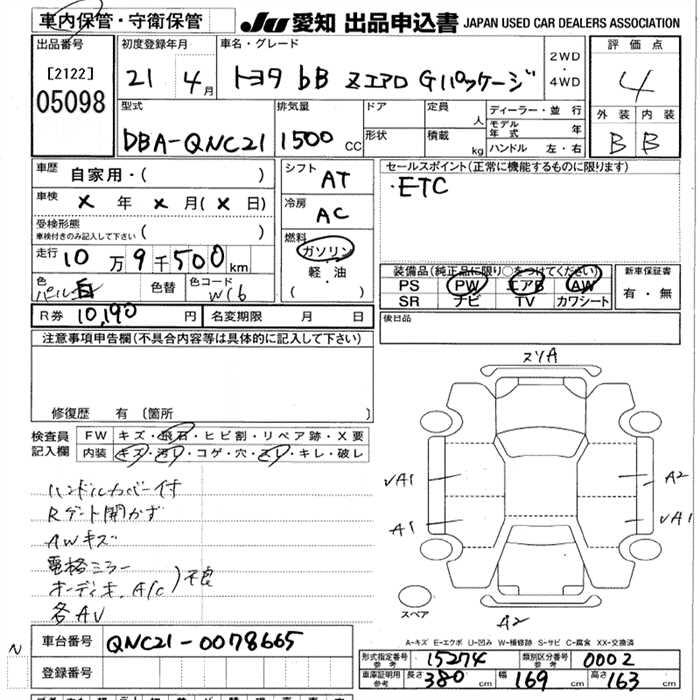 車内保管・守衛保管
JU 愛知 出品申込書 JAPAN USED CAR DEALERS ASSOCIATION
出品番号
[2122]
05098
初度登録年月
21 4月
車名・グレード
トヨタ bB Zエアロ Gパッケージ
2WD
・
4WD
評価点
4
外装 内装
B B
型式
DBA-QNC21
排気量
1500 CC
ドア
形状
定員 人
積載 kg
ディーラー・並行
モデル年式 年
ハンドル 左・右
車歴 自家用・( )
車検 X 年 X 月(X 日)
受検形態
車検付きのみ記入して下さい ( )
走行 10万9千500km
色 パール白 色替 色コード W16
シフト AT
冷房 AC
燃料
ガソリン
軽・油
( )
セールスポイント(正常に機能するものに限ります)
・ETC
装備品(純正品に限り○をつけてください)
PS PW エアB AW
SR ナビ TV カワシート
新車保証書
有・無
R券 10,190円 名変期限 月 日
後日品
注意事項申告欄(不具合内容等は具体的に記入して下さい)
修復歴 有 〔箇所 〕
検査員記入欄
FW キズ・飛石・ヒビ割・リペア跡・X要
内装 キズ・汚レ・コゲ・穴・スレ・キレ・破レ
ハンドルカバー付
Rゲート開かず
AWキズ
電格ミラー
オーディオ、A/C)不良
各AV
スリA
VA1
A1
A2
VA1
A2
スペア
A-キズ E-エクボ U-凹み W-補修跡 S-サビ C-腐食 XX-交換済
N
車台番号 QNC21-0078665
登録番号
型式指定番号 参考 15274 類別区分番号 参考 0002
車庫証明用 参考 長さ 380cm 幅 169cm 高さ 163cm